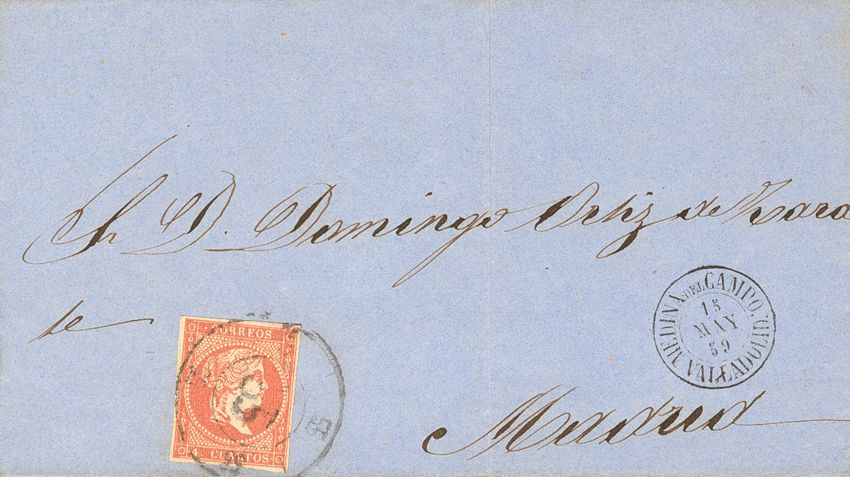 Sr D. Domingo Ortiz de Zara
te
CORREOS
4 CUARTOS
MEDINA DEL CAMPO.
15
MAY
59
VALLADOLID.
Madrid